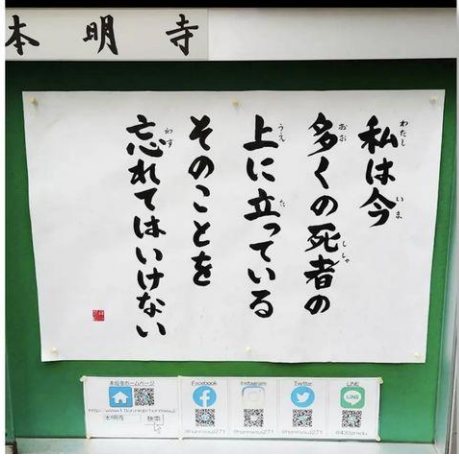 本明寺
私は今
多くの死者の
上に立っている
そのことを
忘れてはいけない
本明寺ホームページ
Facebook
Instagram
Twitter
LINE
本明寺
検索